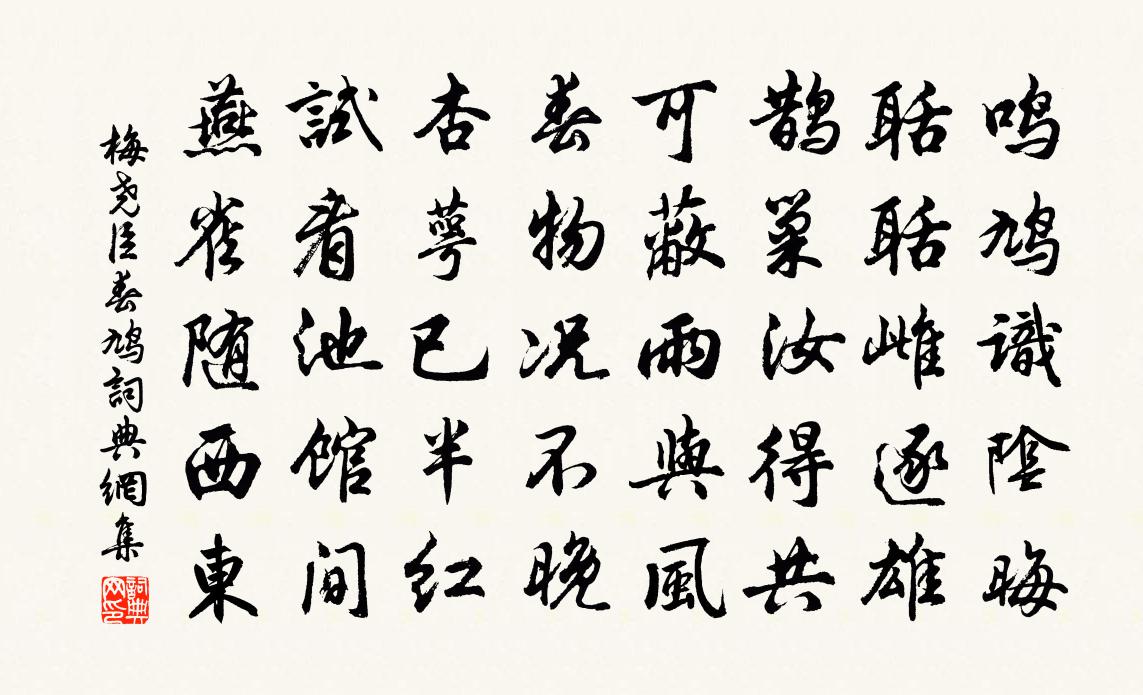 鸣鸠識陰晦
聒聒雌逐雄
鹊巢汝得共
可蔽雨與風
春物况不晚
杏萼已半红
試看池馆间
燕雀随西東
梅尧臣春鸠詞典網集
詞典網印